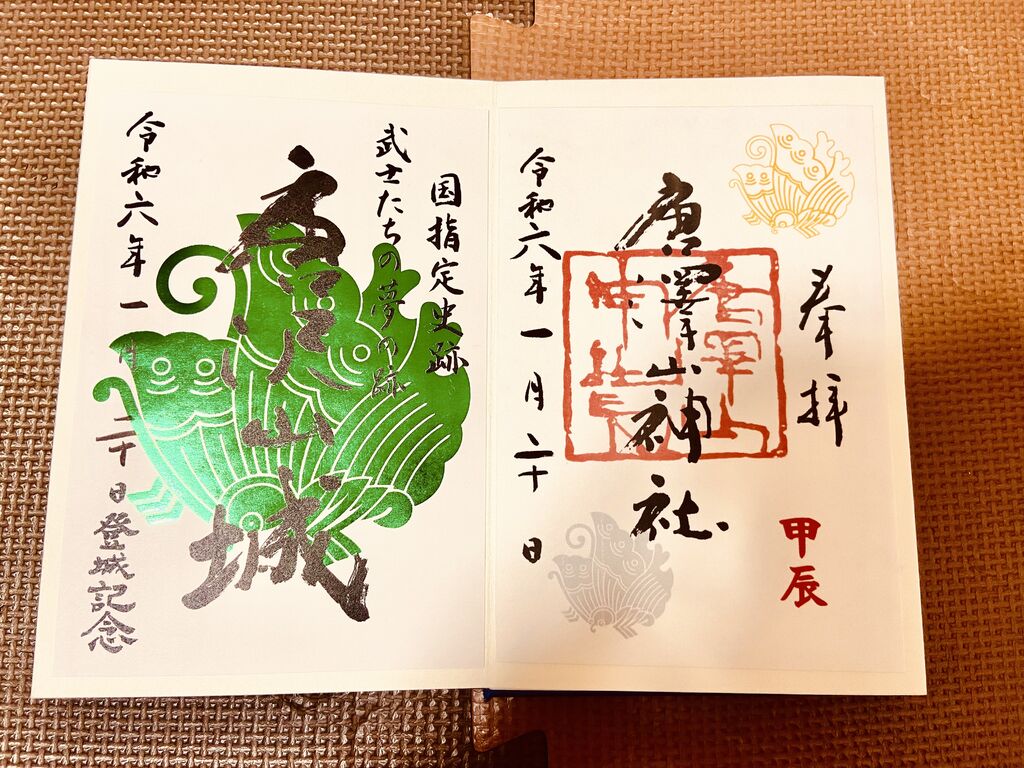 奉拝
甲辰
唐澤山神社
令和六年一月二十日
国指定史跡
武士たちの夢の跡
唐沢山城
令和六年一月二十日登城記念